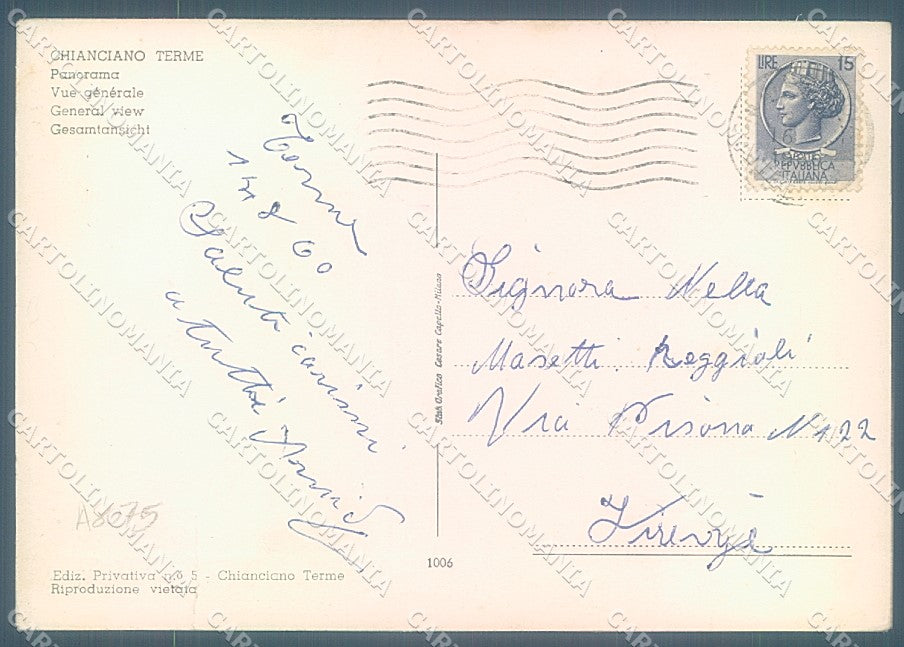 CHIANCIANO TERME
Panorama
Vue générale
General view
Gesamtansicht
LIRE 15
POSTE
REPVBBLICA
ITALIANA
Terme
8 60
Saluti carissimi
a tutti
Signora Nella
Masetti Reggioli
Via Pisana N 122
Firenze
Stab. Grafico Cesare Capello-Milano
1006
A8675
Ediz. Privativa n° 5 - Chianciano Terme
Riproduzione vietata
CARTOLINOMANIA